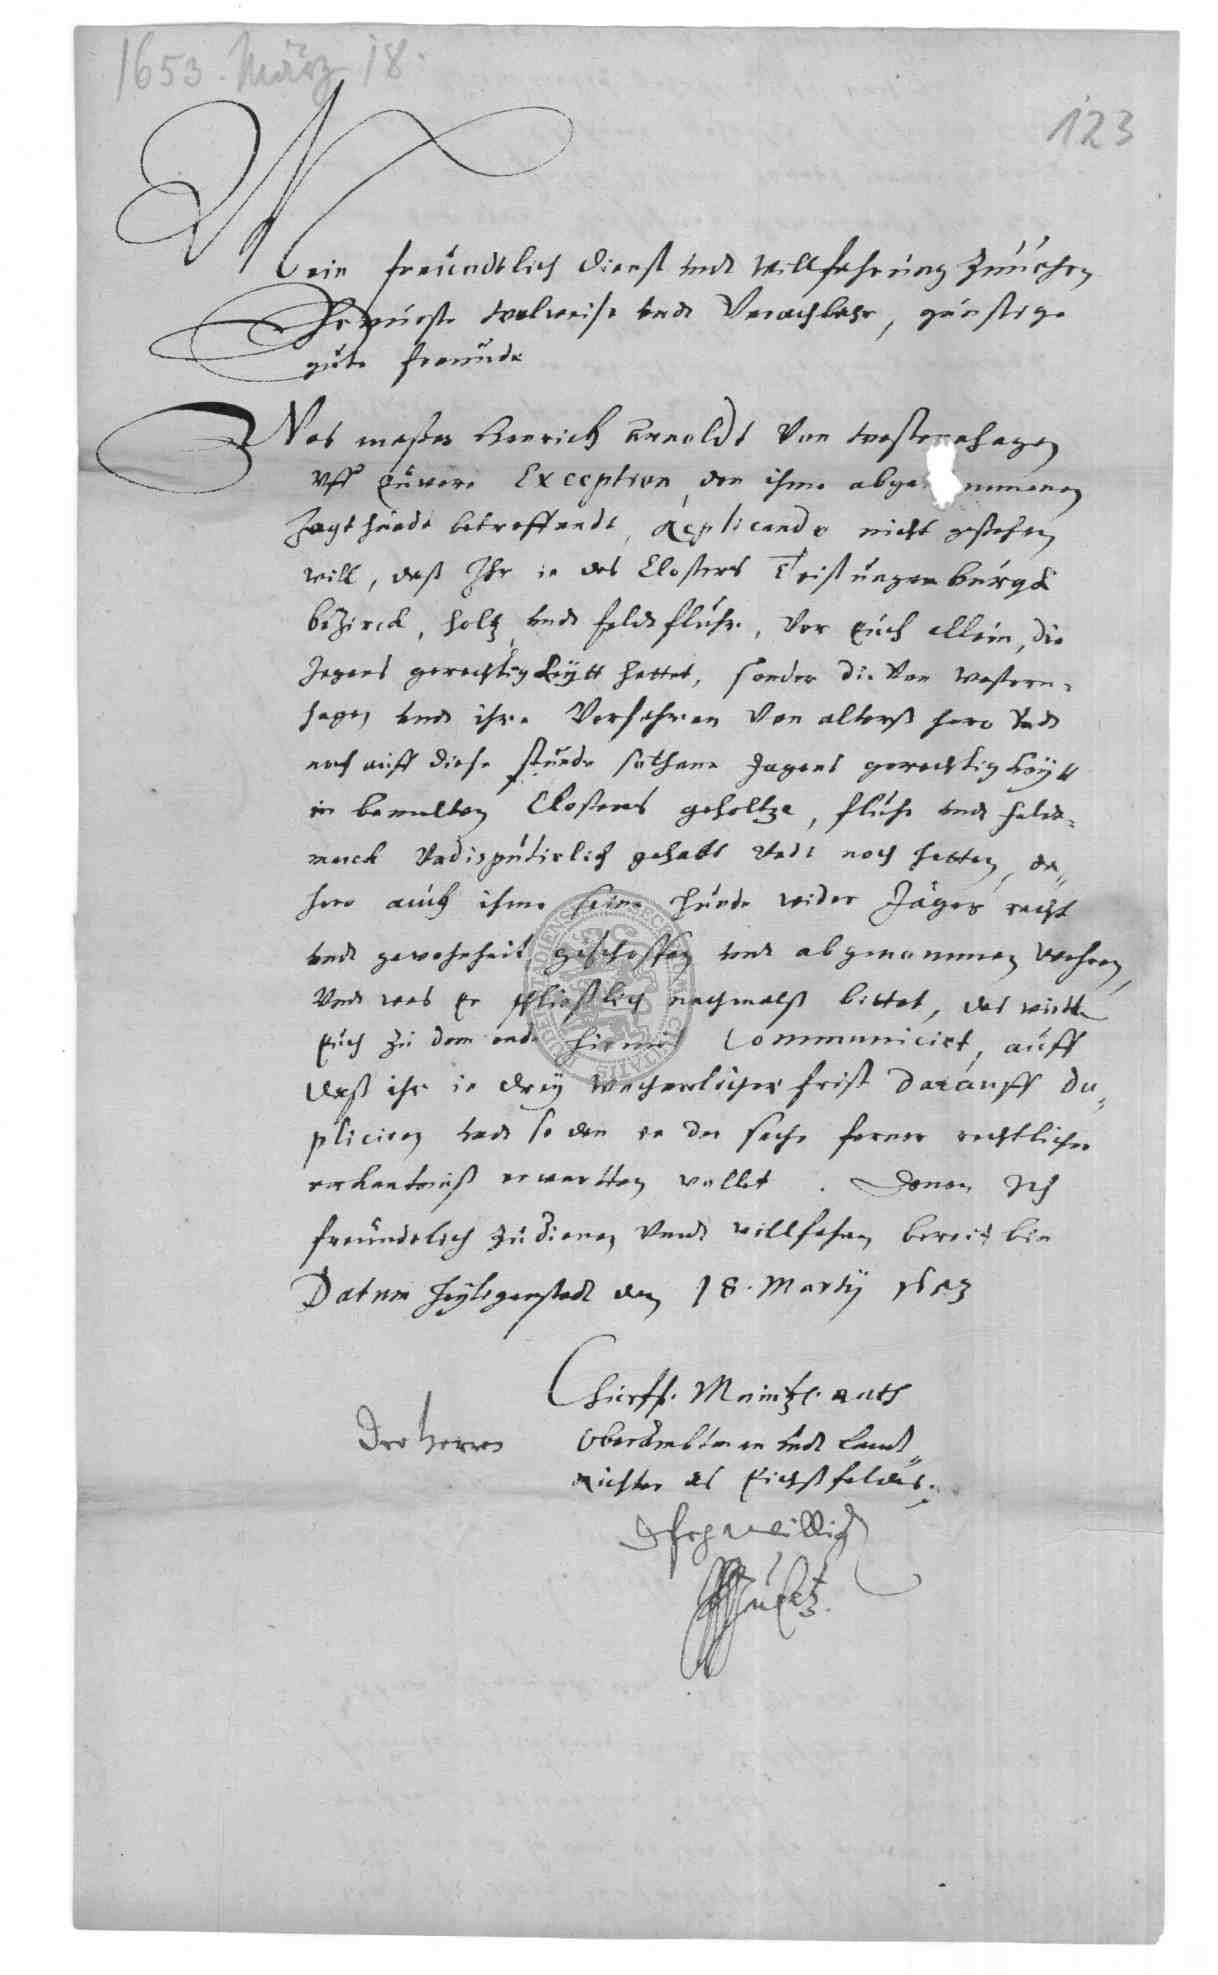 1653. März 18.
123
Mein freündtlich dienst undt willfahrung zuuohrn
Ehrnueste wolweise undt Vorachtbahr, günstige
gute freünde
Was maßen Henrich Arnoldt Von westernhagen
Uff Eüwere Exception, den ihme abgenommenen
Jagthundt betreffendt, Replicando nicht gestehen
will, daß Ihr in des Closters Teistungenburgk
bezirck, holtz undt feldtfluhr, Vor Euch allein, die
Jagens gerechtigkeytt hettet, sonder die Von Western-
hagen undt ihre Vorfahren Von alterß hero Undt
noch auff diese stunde sothane Jagens gerechtigkeytt
in bemelten Closters geholtze, fluhr undt feldt-
marck Undisputirlich gehabt Undt noch hetten, da-
hero auch ihme seine Hunde wider Jäger recht
undt gewohnheit geschossen undt abgenommen wehren,
Undt was Er schließlich nachmalß bittet, das wirdt
Euch zu dem ende hiemit Communicirt, auff
daß ihr in drey wochentlicher frist darauff du-
pliciren undt so dan in der sache ferner rechtlicher
erkantniß erwartten wollet. Denen Ich
freündtlich zu dienen Undt willfahren bereit bin
Datum Heyligenstadt den 18. Martij 1653
Churff. Maintz. Rath
Oberambtman undt Landt-
Richter des Eichßfeldes.
Der Herren
dienstwilliger